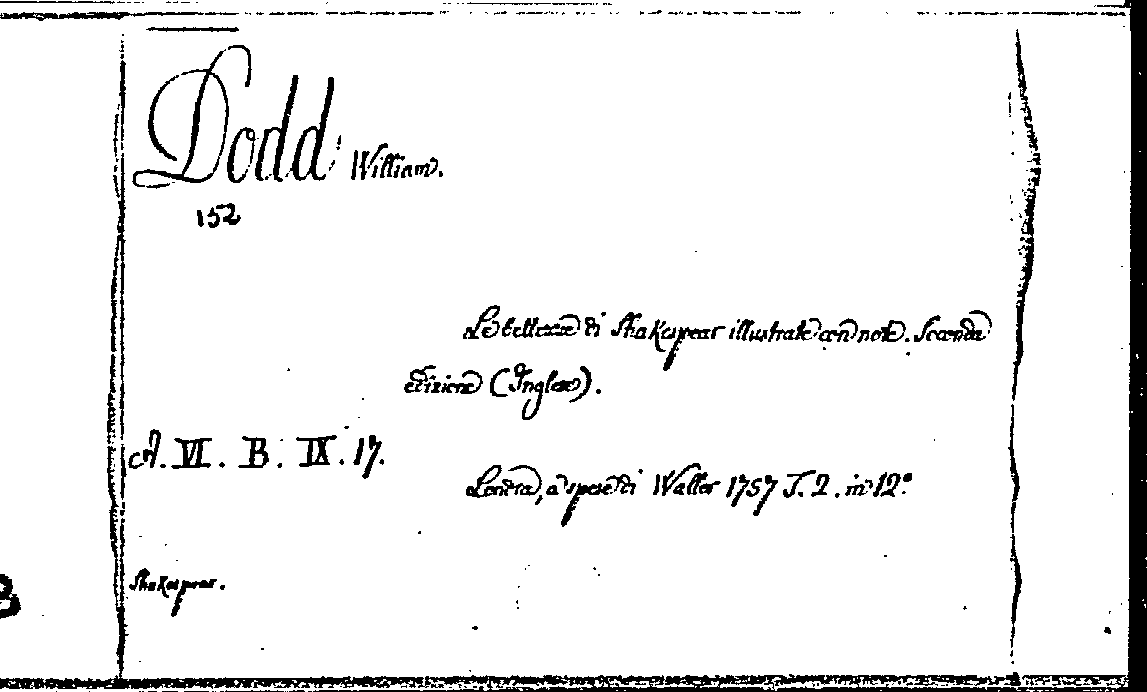 Dodd William.
152
Le bellezze di Shakespear illustrate con note. Seconda
edizione (Inglese).
A. VI. B. IX. 17.
Londra, a spese di Waller 1757 T. 2. in 12.°
Shakespear.